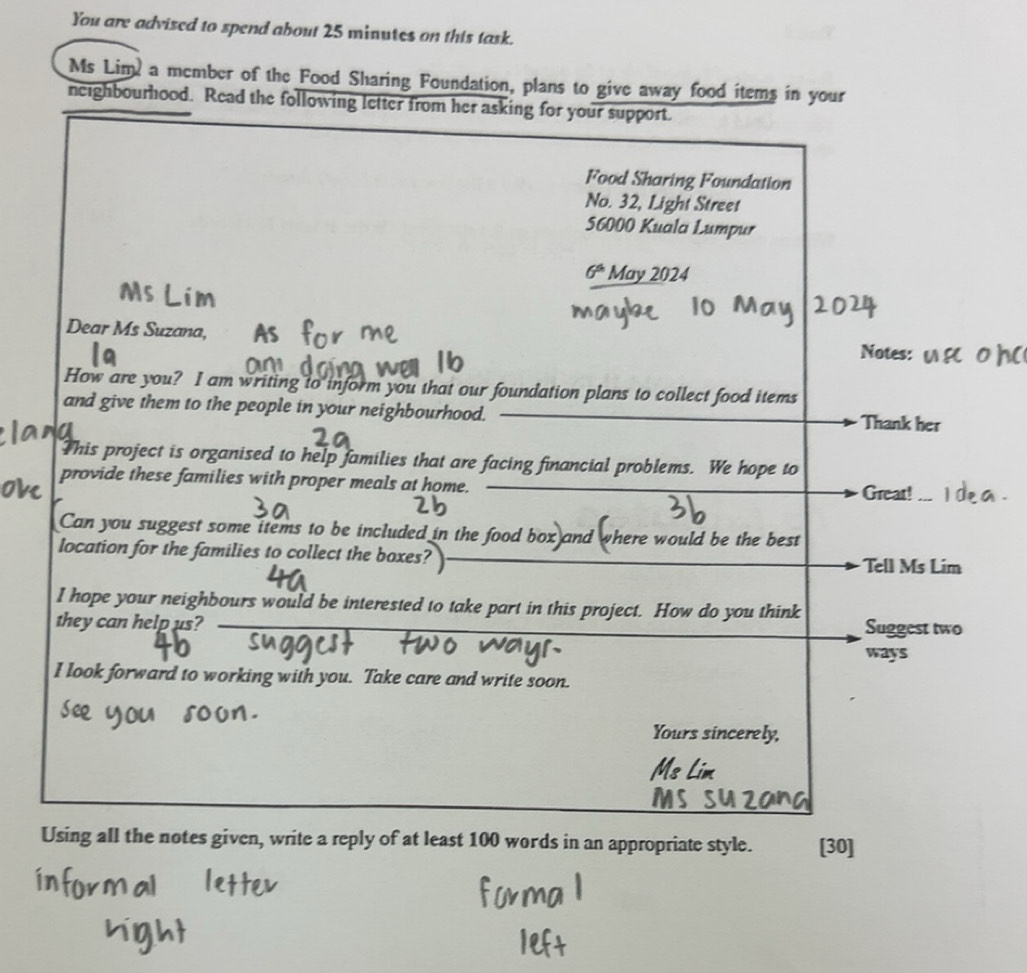 You are advised to spend about 25 minutes on this task.
Ms Lim, a member of the Food Sharing Foundation, plans to give away food items in your
neighbourhood. Read the following letter from her asking for your support.
Food Sharing Foundation
No. 32, Light Street
56000 Kuala Lumpur
6th May 2024
maybe 10 May 2024
Ms Lim
Dear Ms Suzana,
As for me
Notes: use
1a am doing well 1b
How are you? I am writing to inform you that our foundation plans to collect food items
and give them to the people in your neighbourhood.
Thank her
2a
This project is organised to help families that are facing financial problems. We hope to
provide these families with proper meals at home.
Great! ... Idea.
3a 2b 3b
Can you suggest some items to be included in the food box) and (where would be the best
location for the families to collect the boxes?)
Tell Ms Lim
4a
I hope your neighbours would be interested to take part in this project. How do you think
they can help us?
Suggest two
ways
4b suggest two ways.
I look forward to working with you. Take care and write soon.
see you soon.
Yours sincerely,
Ms Lim
Ms suzana
Using all the notes given, write a reply of at least 100 words in an appropriate style. [30]
informal letter formal
right left